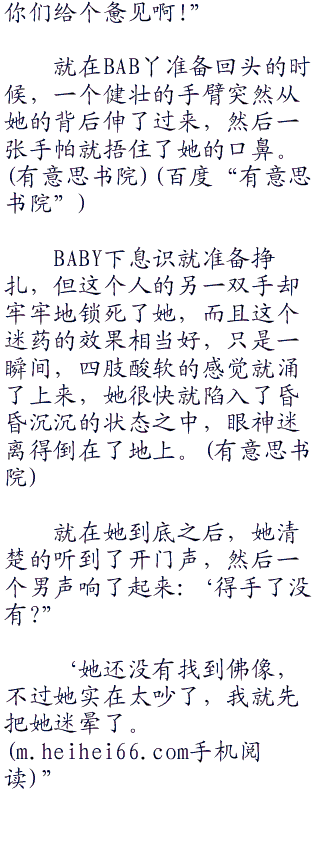 你们给个惫见啊!”
就在BAB丫准备回头的时
候，一个健壮的手臂突然从
她的背后伸了过来，然后一
张手帕就捂住了她的口鼻。
(有意思书院)(百度“有意思
书院”)
BABY下息识就准备挣
扎，但这个人的另一双手却
牢牢地锁死了她，而且这个
迷药的效果相当好，只是一
瞬间，四肢酸软的感觉就涌
了上来，她很快就陷入了昏
昏沉沉的状态之中，眼神迷
离得倒在了地上。(有意思书
院)
就在她到底之后，她清
楚的听到了开门声，然后一
个男声响了起来:‘得手了没
有?”
‘她还没有找到佛像，
不过她实在太吵了，我就先
把她迷晕了。
(m.heihei66.com手机阅
读)”